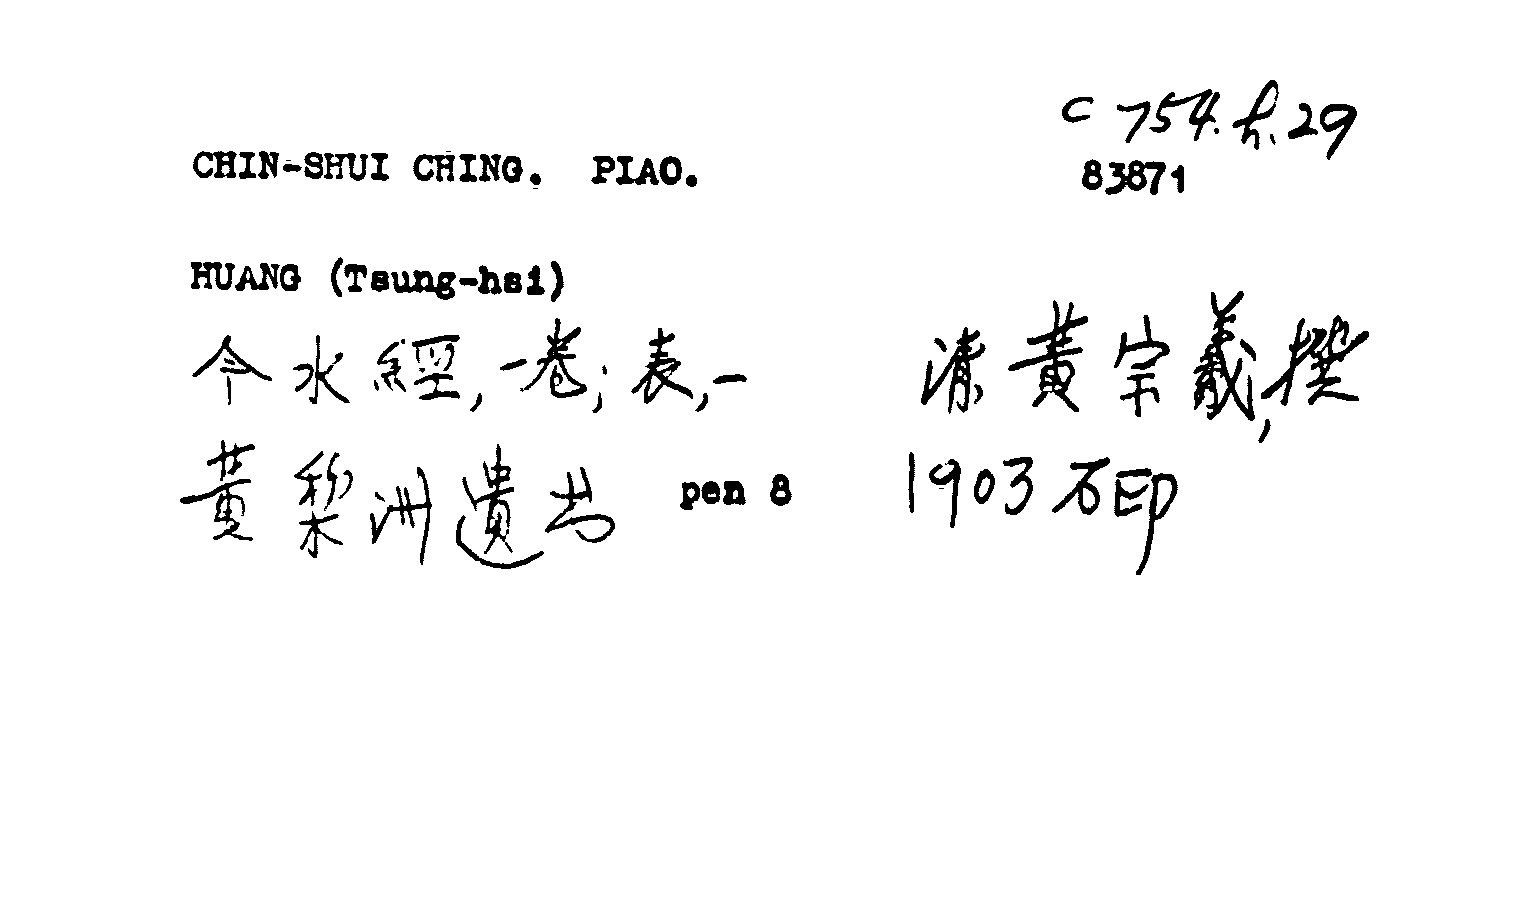 C 754.h.29
CHIN-SHUI CHING. PIAO.
83871
HUANG (Tsung-hsi)
今水經,一卷;表,一 清黃宗羲,撰
黃梨洲遺书 pen 8 1903 石印